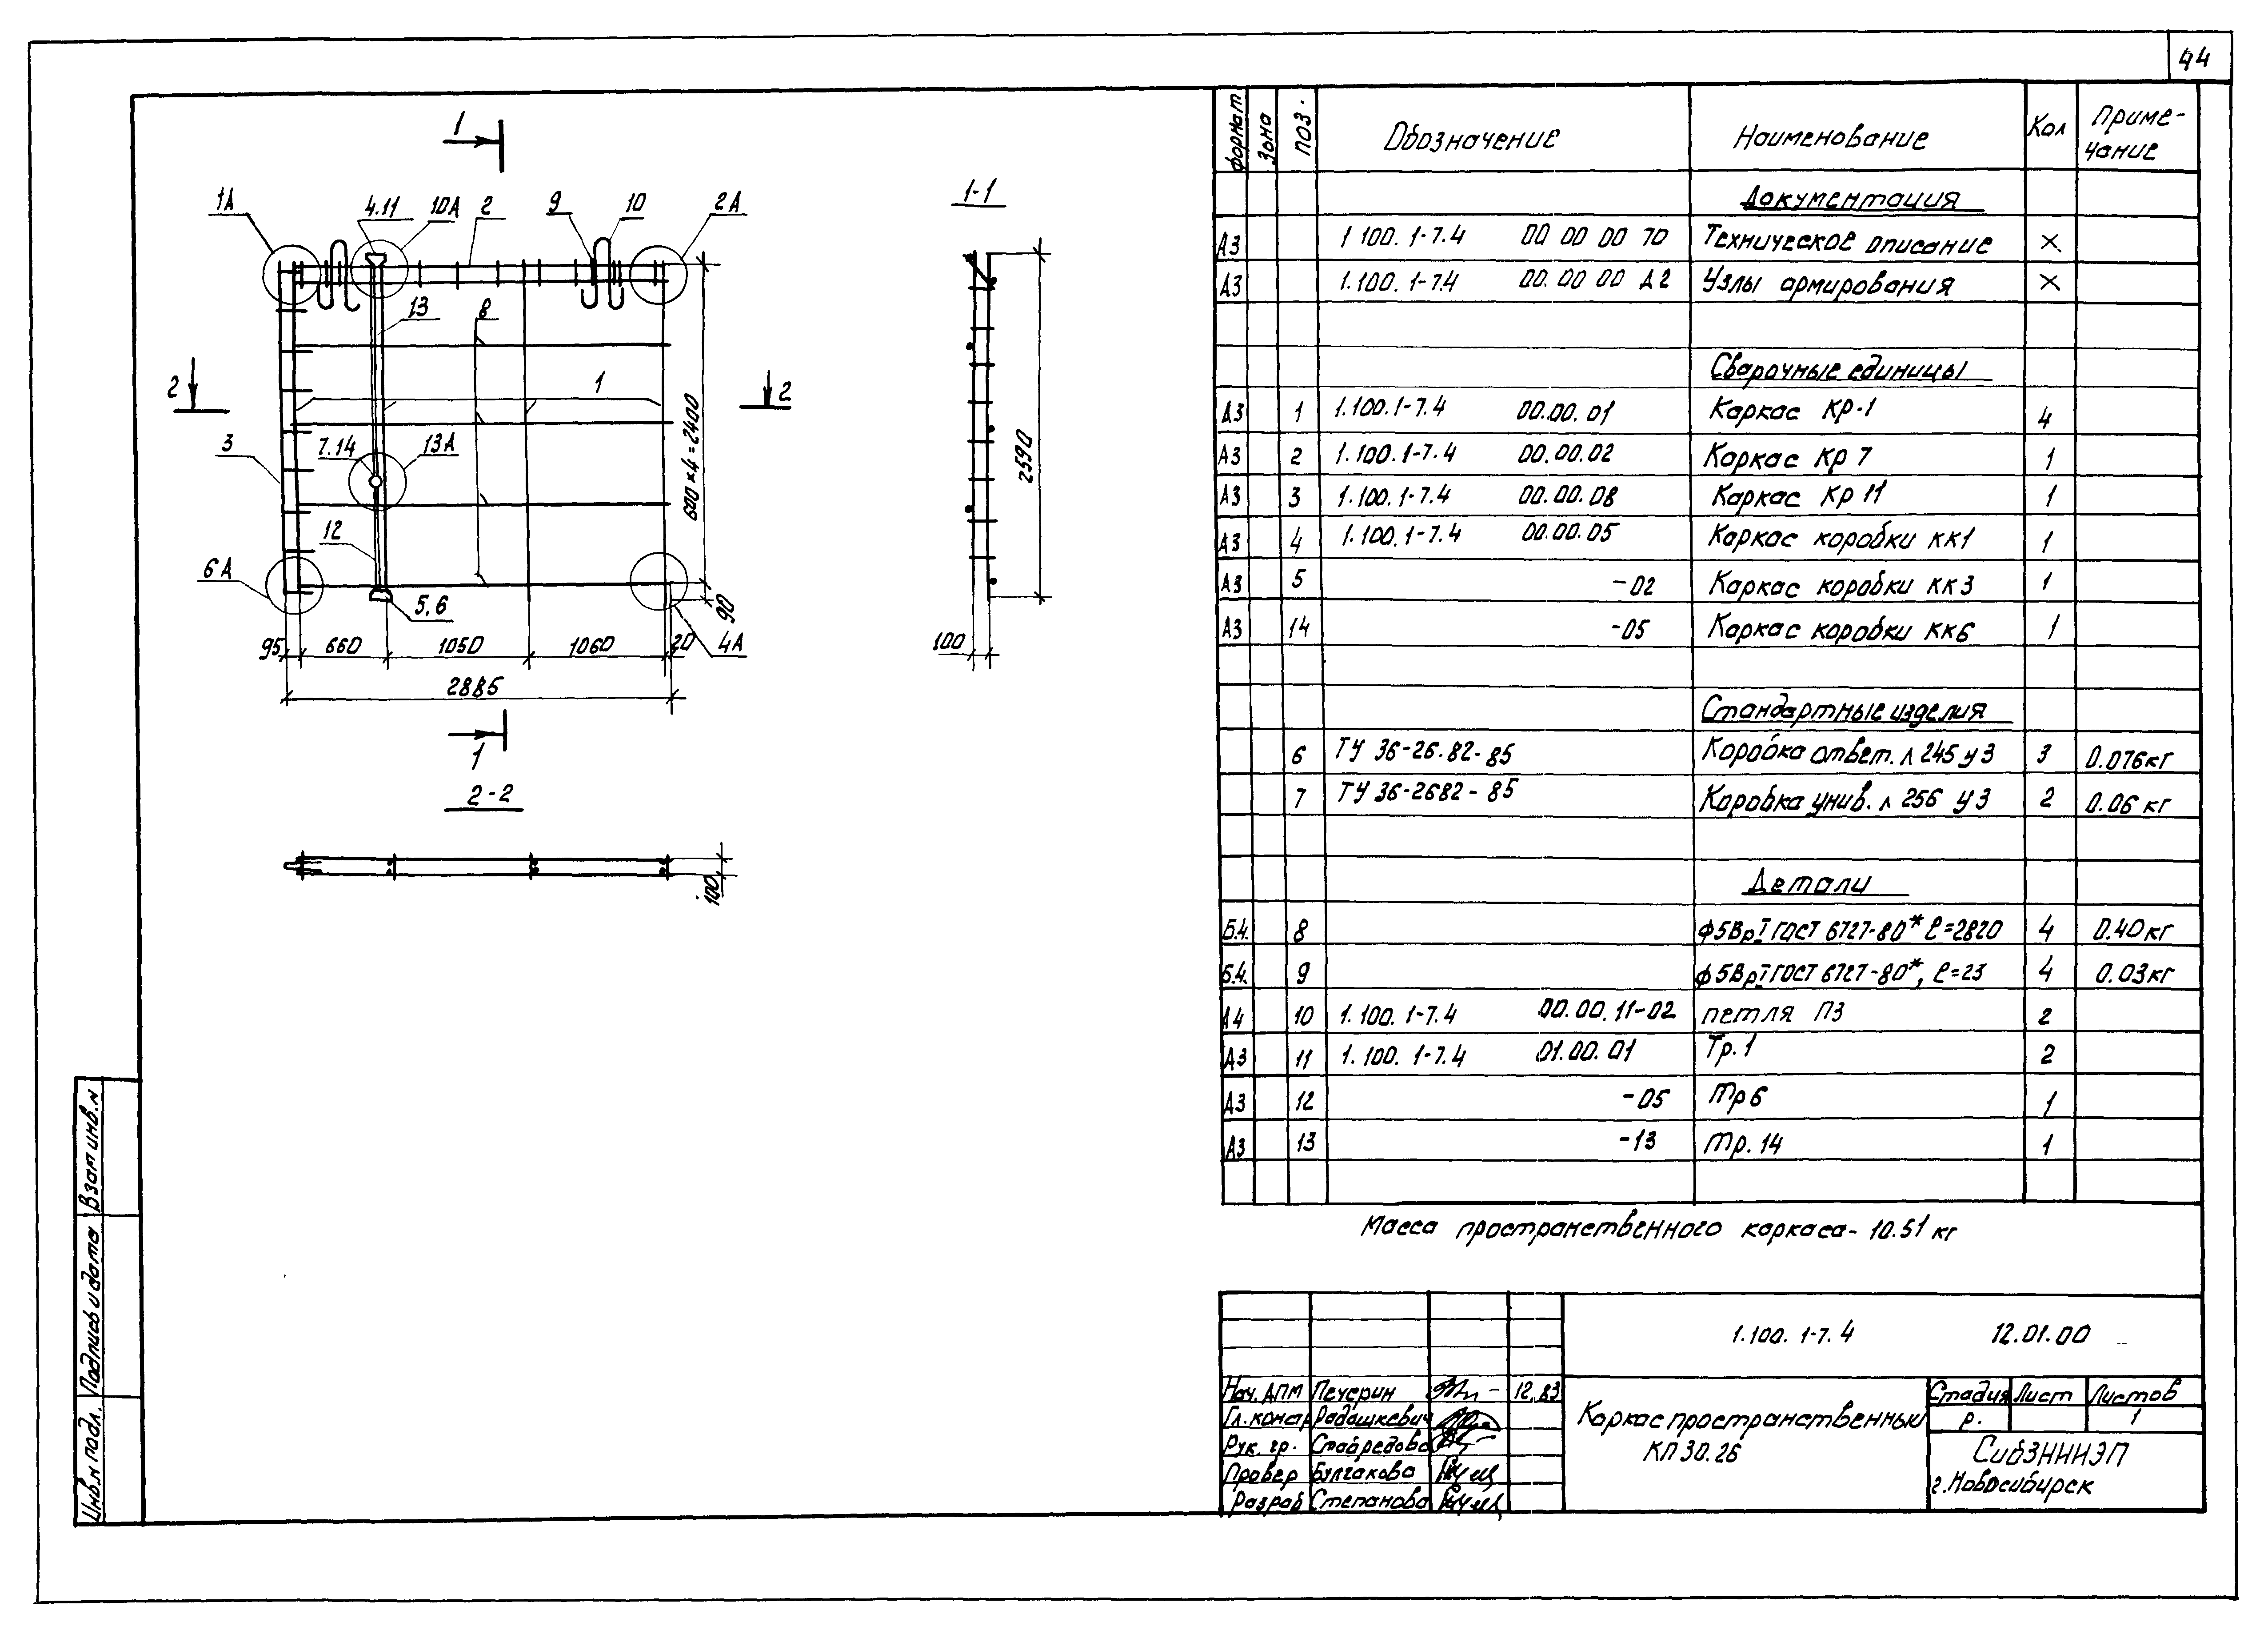 44
1
1А
4.11
10А
2
9
10
2А
1-1
13
8
2
1
2
3
7.14
13А
600×4=2400
2590
12
6А
5,6
90
4А
95
660
1050
1060
20
100
2885
1
2-2
100
формат
Зона
поз.
Обозначение
Наименование
Кол
Приме-
чание
Документация
А3 1 100. 1-7.4 00 00 00 ТО Техническое описание ×
А3 1.100. 1-7.4 00. 00 00 Д2 Узлы армирования ×
Сварочные единицы
А3 1 1.100.1-7.4 00.00.01 Каркас Кр-1 4
А3 2 1.100.1-7.4 00.00.02 Каркас Кр 7 1
А3 3 1.100.1-7.4 00.00.08 Каркас Кр 11 1
А3 4 1.100.1-7.4 00.00.05 Каркас коробки КК1 1
А3 5 -02 Каркас коробки КК3 1
А3 14 -05 Каркас коробки КК6 1
Стандартные изделия
6 ТУ 36-26.82-85 Коробка ответ. Л 245 У3 3 0.076кг
7 ТУ 36-2682-85 Коробка унив. Л 256 У3 2 0.06 кг
Детали
Б.4. 8 ф5ВрI ГОСТ 6727-80* ℓ=2820 4 0.40кг
Б.4. 9 ф5ВрI ГОСТ 6727-80*, ℓ=23 4 0.03кг
А4 10 1.100. 1-7.4 00.00. 11-02 петля П3 2
А3 11 1.100. 1-7.4 01.00. 01 Тр.1 2
А3 12 -05 Тр6 1
А3 13 -13 Тр. 14 1
Масса пространственного каркаса- 10.51 кг
1.100. 1-7.4 12.01.00
Нач. АПМ Печерин 12.83
Гл.констр Радашкевич
Рук. гр.
Провер Булгакова
Разраб Степанова
Каркас пространственный
КП 30.26
Стадия Лист Листов
Р. 1
СибЗНИИЭП
г.Новосибирск
Взам инв.N
Подпись и дата
Инв.N подл.